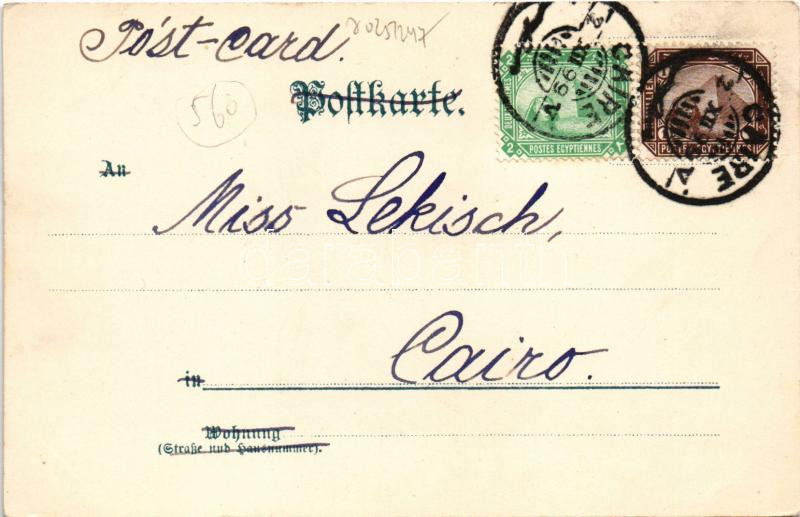 Post-card.
560
Postkarte.
2 2
POSTES EGYPTIENNES
POSTES EGYPTIENNES
CAIRE
CAIRE
An
Miss Lekisch,
Cairo.
in
Wohnung
(Straße und Hausnummer).